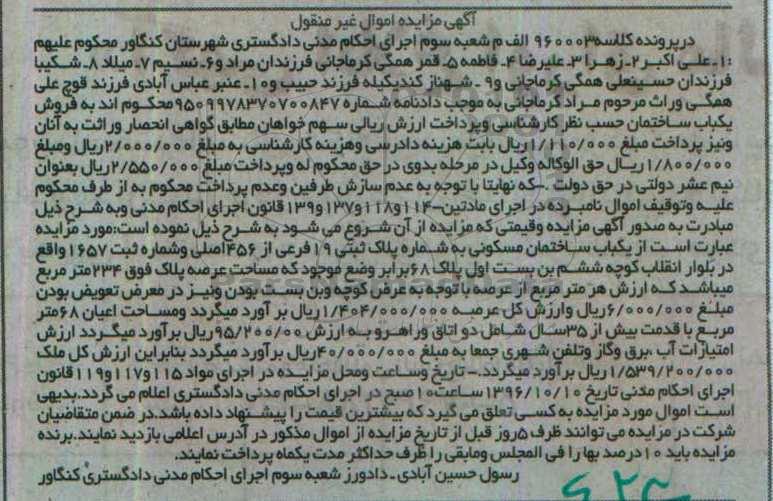 آگهی مزایده اموال غیر منقول
درپرونده کلاسه ۹۶۰۰۰۳ الف م شعبه سوم اجرای احکام مدنی دادگستری شهرستان کنگاور محکوم علیهم
:۱ـ علی اکبر ۲ـ زهرا ۳ـ علیرضا ۴ـ فاطمه ۵ـ قمر همگی کرماجانی فرزندان مراد و ۶ـ نسیم ۷ـ میلاد ۸ـ شکیبا
فرزندان حسینعلی همگی کرماجانی و ۹ـ شهناز کندیکیله فرزند حبیب و ۱۰ـ عنبر عباس آبادی فرزند قوچ علی
همگی وراث مرحوم مراد کرماجانی به موجب دادنامه شماره ۹۵۰۹۹۷۸۳۷۰۷۰۰۸۴۷ محکوم اند به فروش
یکباب ساختمان حسب نظر کارشناسی وپرداخت ارزش ریالی سهم خواهان مطابق گواهی انحصار وراثت به آنان
ونیز پرداخت مبلغ ۱/۱۱۰/۰۰۰ ریال بابت هزینه دادرسی وهزینه کارشناسی به مبلغ ۲/۰۰۰/۰۰۰ ریال ومبلغ
۱/۸۰۰/۰۰۰ ریال حق الوکاله وکیل در مرحله بدوی در حق محکوم له وپرداخت مبلغ ۲/۵۵۰/۰۰۰ ریال بعنوان
نیم عشر دولتی در حق دولت .ـ که نهایتا با توجه به عدم سازش طرفین وعدم پرداخت محکوم به از طرف محکوم
علیه وتوقیف اموال نامبرده در اجرای مادتین ـ ۱۱۴و۱۱۸و۱۳۷و۱۳۹ قانون اجرای احکام مدنی وبه شرح ذیل
مبادرت به صدور آگهی مزایده وقیمتی که مزایده از آن شروع می شود به شرح ذیل نموده است:مورد مزایده
عبارت است از یکباب ساختمان مسکونی به شماره پلاک ثبتی ۱۹ فرعی از ۴۵۶ اصلی وشماره ثبت ۱۶۵۷ واقع
در بلوار انقلاب کوچه ششم بن بست اول پلاک ۶۸ برابر وضع موجود که مساحت عرصه پلاک فوق ۲۳۴ متر مربع
میباشد که ارزش هر متر مربع از عرصه با توجه به عرض کوچه وبن بست بودن ونیز در معرض تعویض بودن
مبلغ ۶/۰۰۰/۰۰۰ ریال وارزش کل عرصه ۱/۴۰۴/۰۰۰/۰۰۰ ریال بر آورد میگردد ومساحت اعیان ۶۸ متر
مربع با قدمت بیش از ۳۵ سال شامل دو اتاق وراهرو به ارزش ۹۵/۲۰۰/۰۰ ریال بر آورد میگردد ارزش
امتیازات آب ،برق وگاز وتلفن شهری جمعا به مبلغ ۴۰/۰۰۰/۰۰۰ ریال برآورد میگردد بنابراین ارزش کل ملک
۱/۵۳۹/۲۰۰/۰۰۰ ریال برآورد میگردد.ـ تاریخ وساعت ومحل مزایده در اجرای مواد ۱۱۵و۱۱۷و۱۱۹ قانون
اجرای احکام مدنی تاریخ ۱۳۹۶/۱۰/۱۰ ساعت ۱۰ صبح در اجرای احکام مدنی دادگستری اعلام می گردد.بدیهی
است اموال مورد مزایده به کسی تعلق می گیرد که بیشترین قیمت را پیشنهاد داده باشد.در ضمن متقاضیان
شرکت در مزایده می توانند ظرف ۵ روز قبل از تاریخ مزایده از اموال مذکور در آدرس اعلامی بازدید نمایند.برنده
مزایده باید ۱۰ درصد بها را فی المجلس ومابقی را ظرف حداکثر مدت یکماه پرداخت نمایند.
رسول حسین آبادی ـ دادورز شعبه سوم اجرای احکام مدنی دادگستری کنگاور